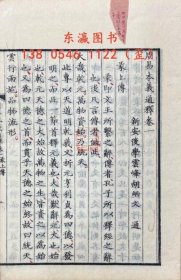 东瀛图书
138 0546 1122
周易本義通釋卷一
新安後學雲峰胡炳文 通
彖上傳
彖即文王所繫之辭傳者孔子所以釋經之辭
也後凡言傳者倣此
大哉乾元萬物資始乃統天
此專以天道明乾義又析元亨利貞為四德以發
明之而此一節首釋元義也大哉歎辭元大也始
也乾元天德之大始故萬物之生皆資之以為始
也又為四德之首而貫乎天德之始終故曰統天
雲行雨施品物流形